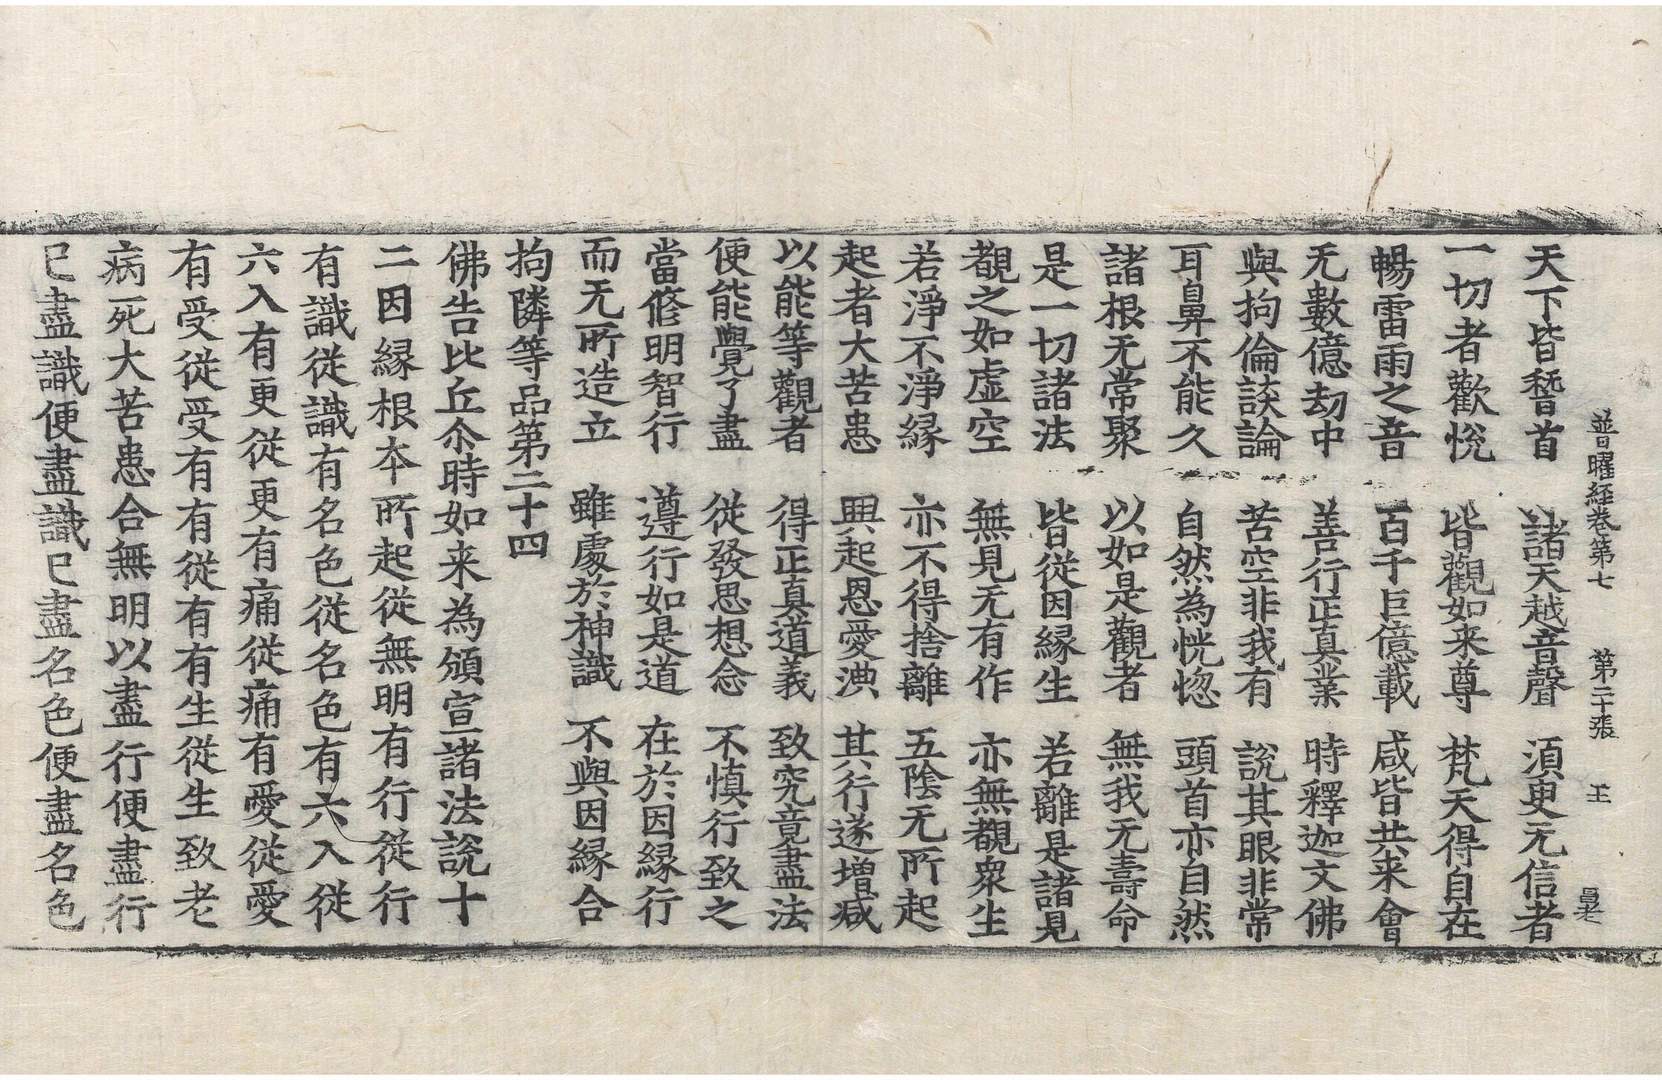 普曜経卷第七 第二十張 王
天下皆稽首 諸天越音聲 須臾无信者
一切者歡悅 皆觀如来尊 梵天得自在
暢雷雨之音 百千巨億載 咸皆共来會
无數億劫中 善行正真業 時釋迦文佛
與拘倫談論 苦空非我有 說其眼非常
耳鼻不能久 自然為恍惚 頭首亦自然
諸根无常聚 以如是觀者 無我无壽命
是一切諸法 皆從因緣生 若離是諸見
覩之如虛空 無見无有作 亦無覩衆生
若淨不淨緣 亦不得捨離 五陰无所起
起者大苦患 興起恩愛澳 其行遂增减
以能等觀者 得正真道義 致究竟盡法
便能覺了盡 從發思想念 不慎行致之
當修明智行 遵行如是道 在於因緣行
而无所造立 雖處於神識 不與因緣合
拘隣等品第二十四
佛告比丘尒時如来為頒宣諸法說十
二因緣根本所起從無明有行從行
有識從識有名色從名色有六入從
六入有更從更有痛從痛有愛從愛
有受從受有有從有有生從生致老
病死大苦患合無明以盡行便盡行
已盡識便盡識已盡名色便盡名色